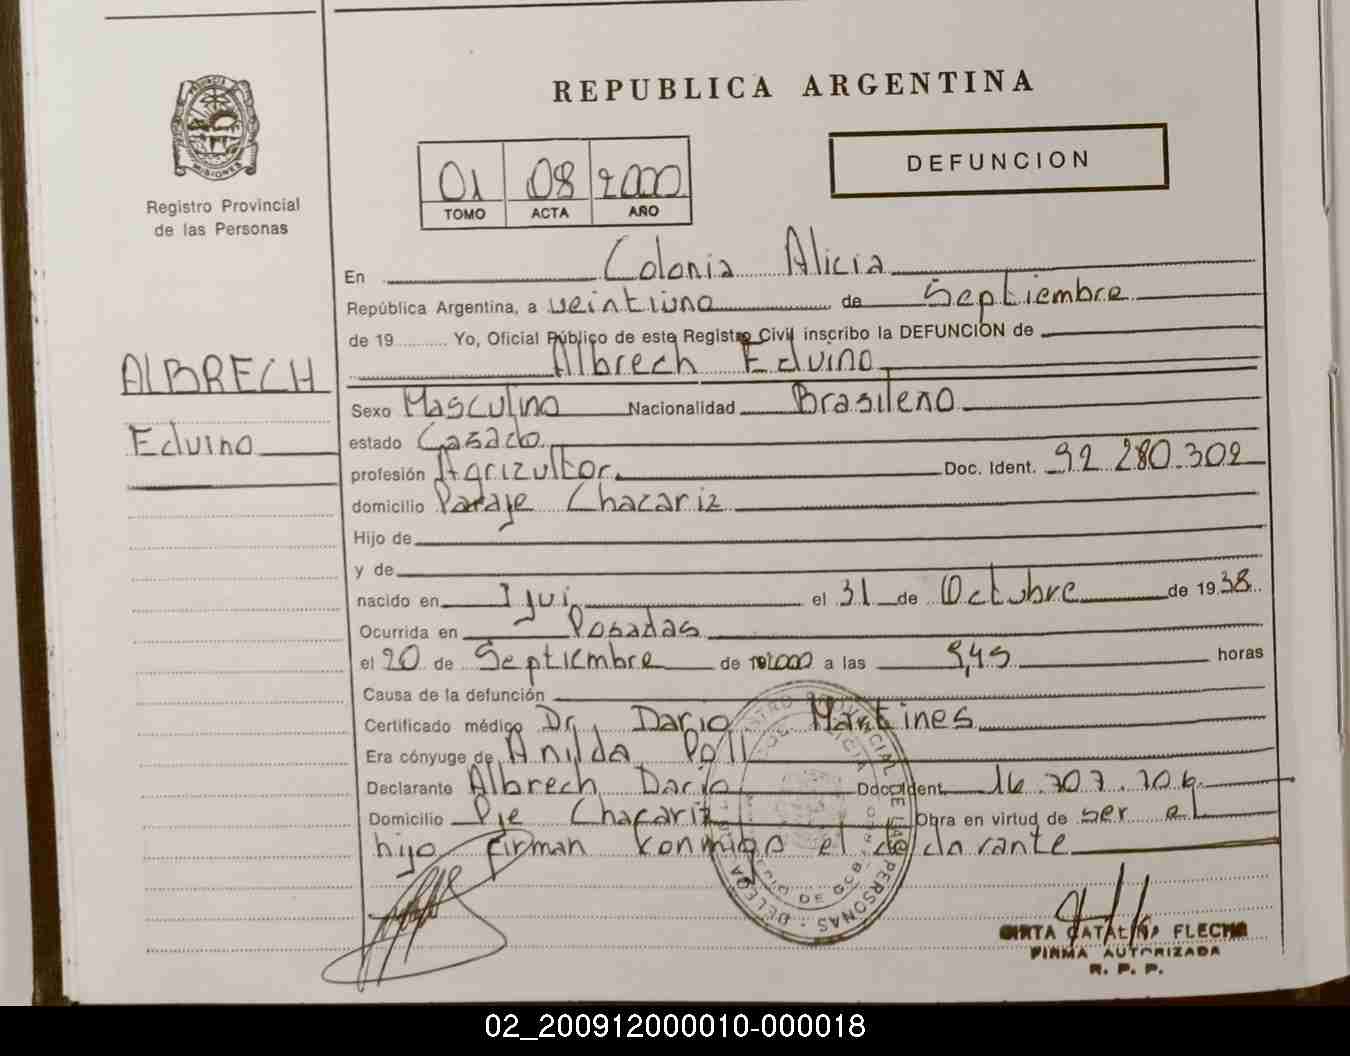 REPUBLICA ARGENTINA
DEFUNCION
01 08 2000
TOMO ACTA AÑO
MISIONES
Registro Provincial
de las Personas
ALBRECH
Edvino
En Colonia Alicia
República Argentina, a veintiuno de Septiembre
de 19.......... Yo, Oficial Público de este Registro Civil inscribo la DEFUNCION de
Albrech Edvino
Sexo Masculino Nacionalidad Brasileno
estado Casado
profesión Agricultor Doc. Ident. 92.280.302
domicilio Paraje Chacariz
Hijo de
y de
nacido en Ijui el 31 de Octubre de 1938
Ocurrida en Posadas
el 20 de Septiembre de 2000 a las 9,45 horas
Causa de la defunción
Certificado médico Dr. Dario Martines
Era cónyuge de Anilda Poll
Declarante Albrech Dario Doc. Ident. 16.707.706
Domicilio Pje Chacariz Obra en virtud de ser el
hijo firman conmigo el declarante
CATALINA FLECHA
FIRMA AUTORIZADA
R. P. P.
02_200912000010-000018